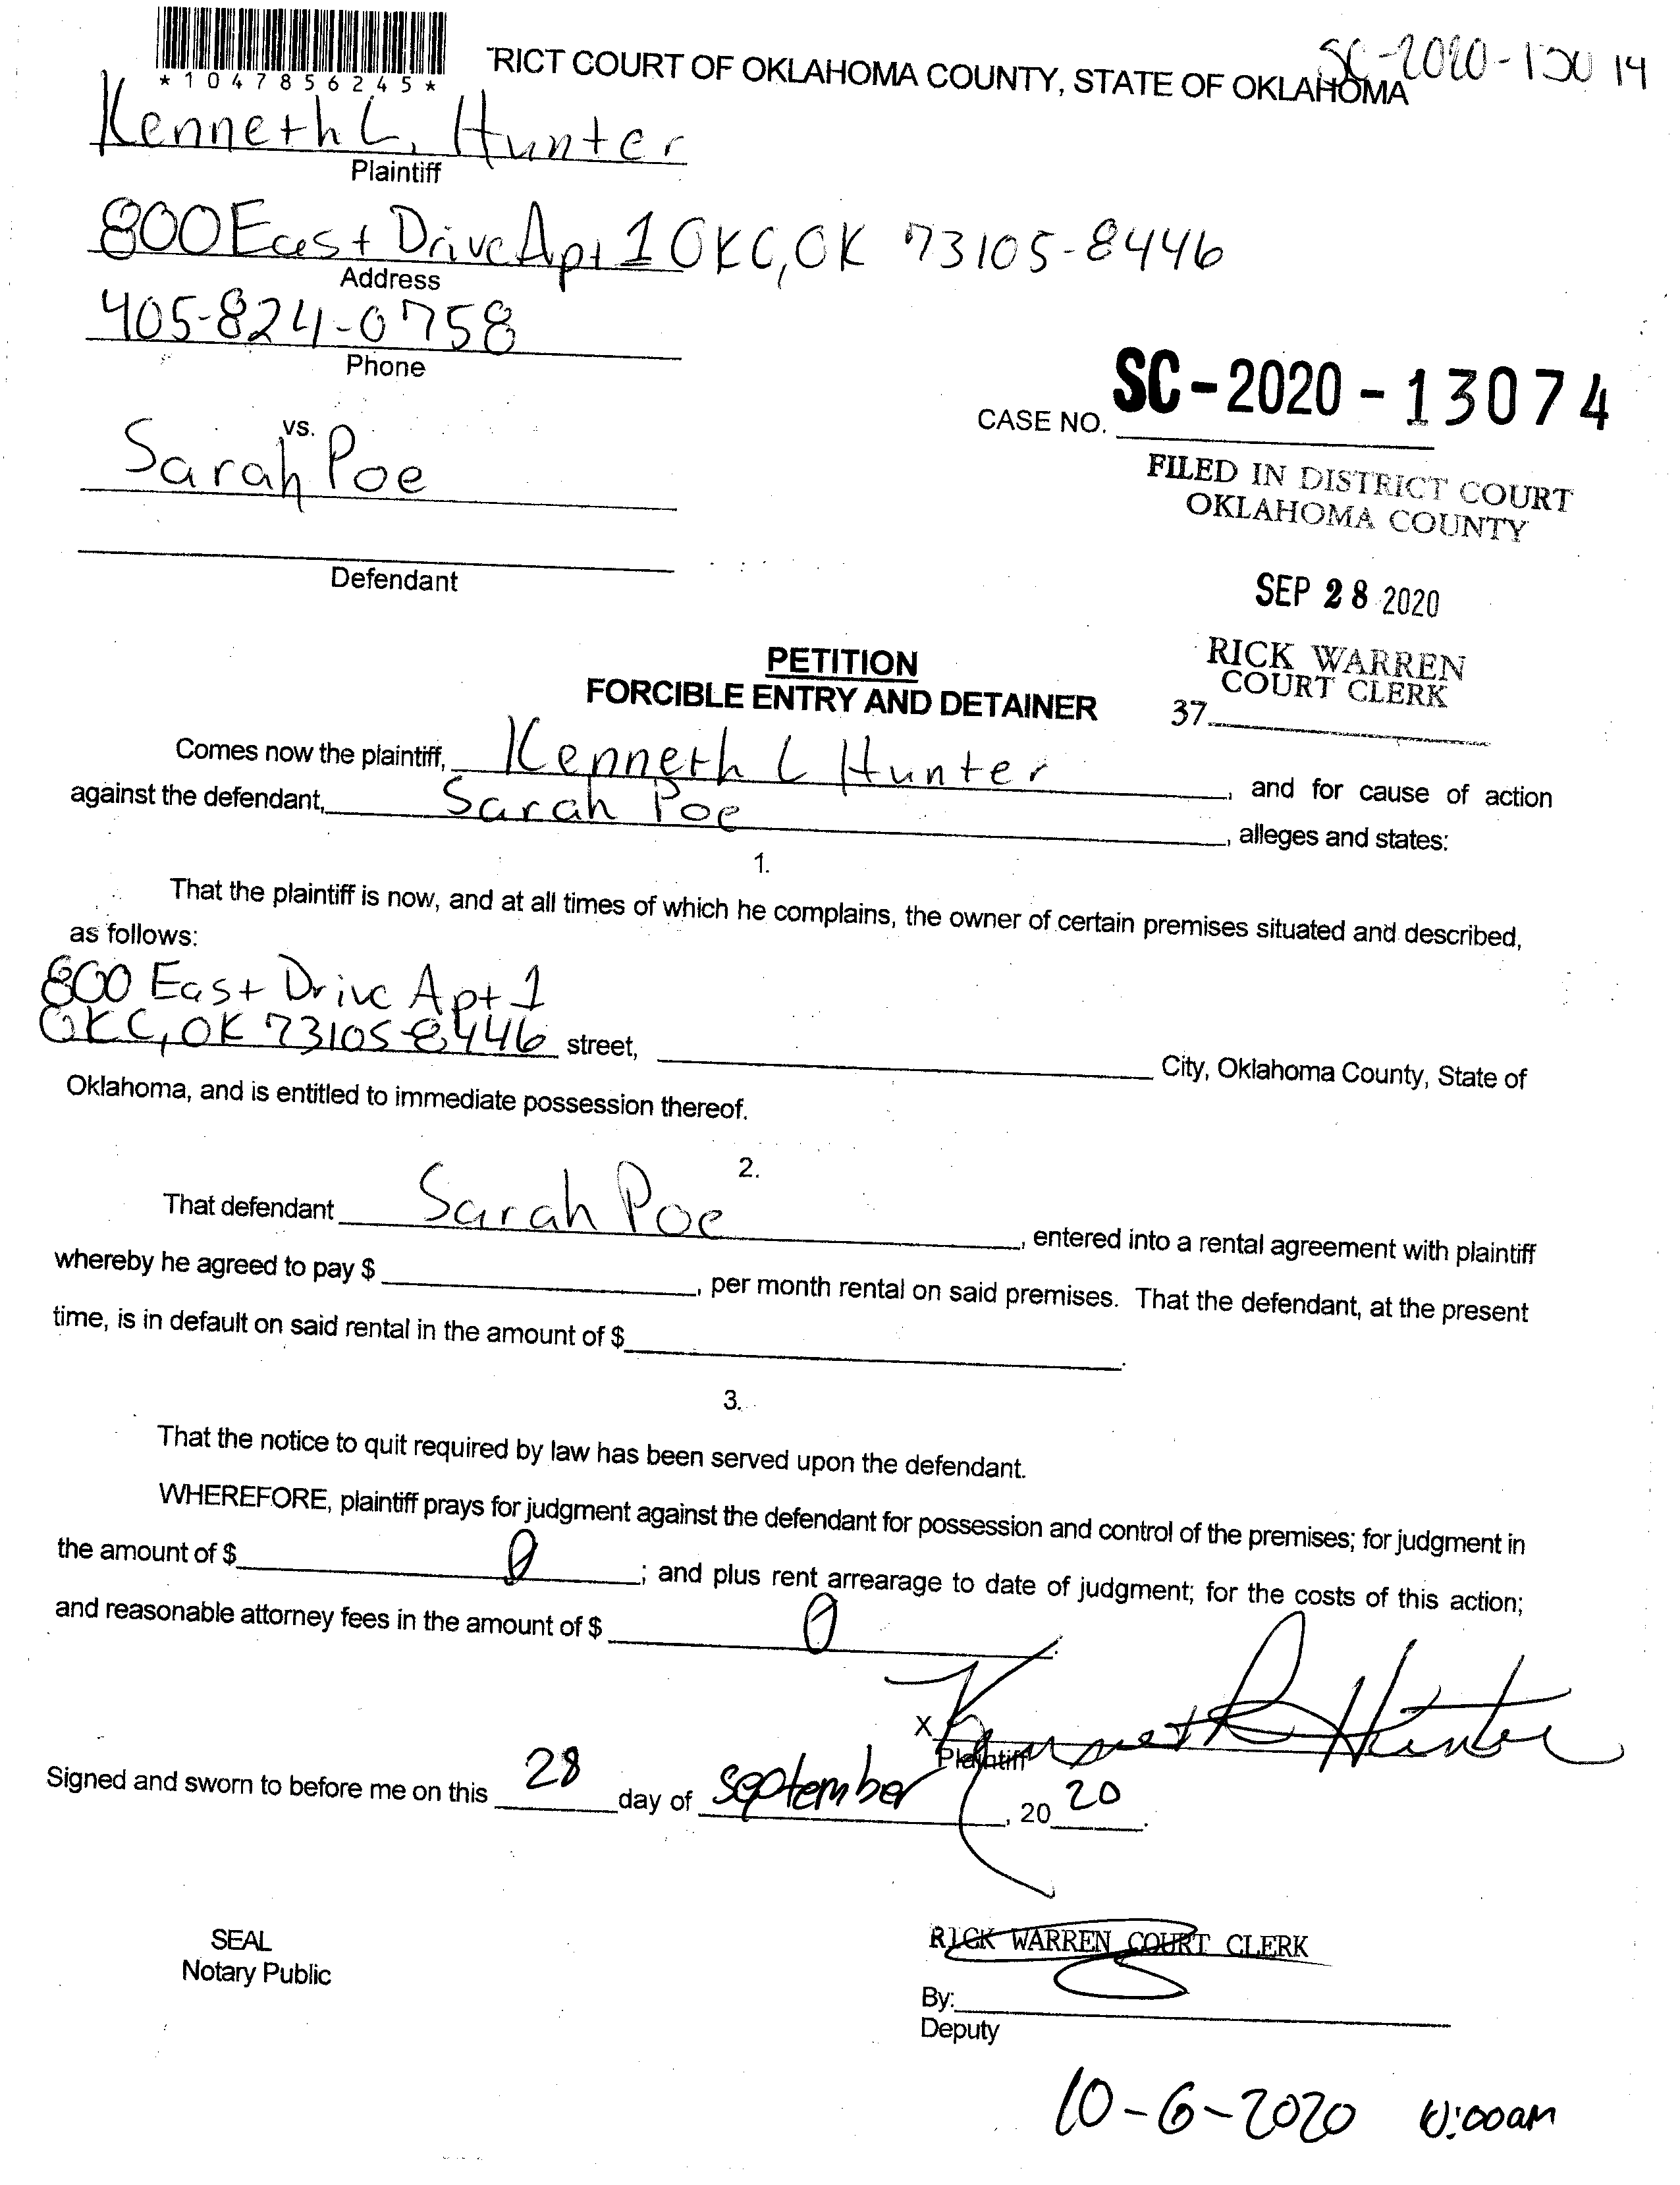 *1047856245*
TRICT COURT OF OKLAHOMA COUNTY, STATE OF OKLAHOMA
SC-2020-130 14
Kenneth L. Hunter
Plaintiff
800 East Drive Apt 1 OKC, OK 73105-8446
Address
405-824-0758
Phone
vs.
Sarah Poe
Defendant
CASE NO. SC-2020-13074
FILED IN DISTRICT COURT
OKLAHOMA COUNTY
SEP 28 2020
RICK WARREN
COURT CLERK
37
PETITION
FORCIBLE ENTRY AND DETAINER
Comes now the plaintiff, Kenneth L Hunter, and for cause of action
against the defendant, Sarah Poe, alleges and states:
1.
That the plaintiff is now, and at all times of which he complains, the owner of certain premises situated and described,
as follows:
800 East Drive Apt 1
OKC, OK 73105-8446 street, City, Oklahoma County, State of
Oklahoma, and is entitled to immediate possession thereof.
2.
That defendant Sarah Poe, entered into a rental agreement with plaintiff
whereby he agreed to pay $, per month rental on said premises. That the defendant, at the present
time, is in default on said rental in the amount of $.
3.
That the notice to quit required by law has been served upon the defendant.
WHEREFORE, plaintiff prays for judgment against the defendant for possession and control of the premises; for judgment in
the amount of $ 0; and plus rent arrearage to date of judgment; for the costs of this action;
and reasonable attorney fees in the amount of $ 0.
X Kenneth L Hunter
Plaintiff
Signed and sworn to before me on this 28 day of september, 20 20.
SEAL
Notary Public
RICK WARREN COURT CLERK
By:
Deputy
10-6-2020